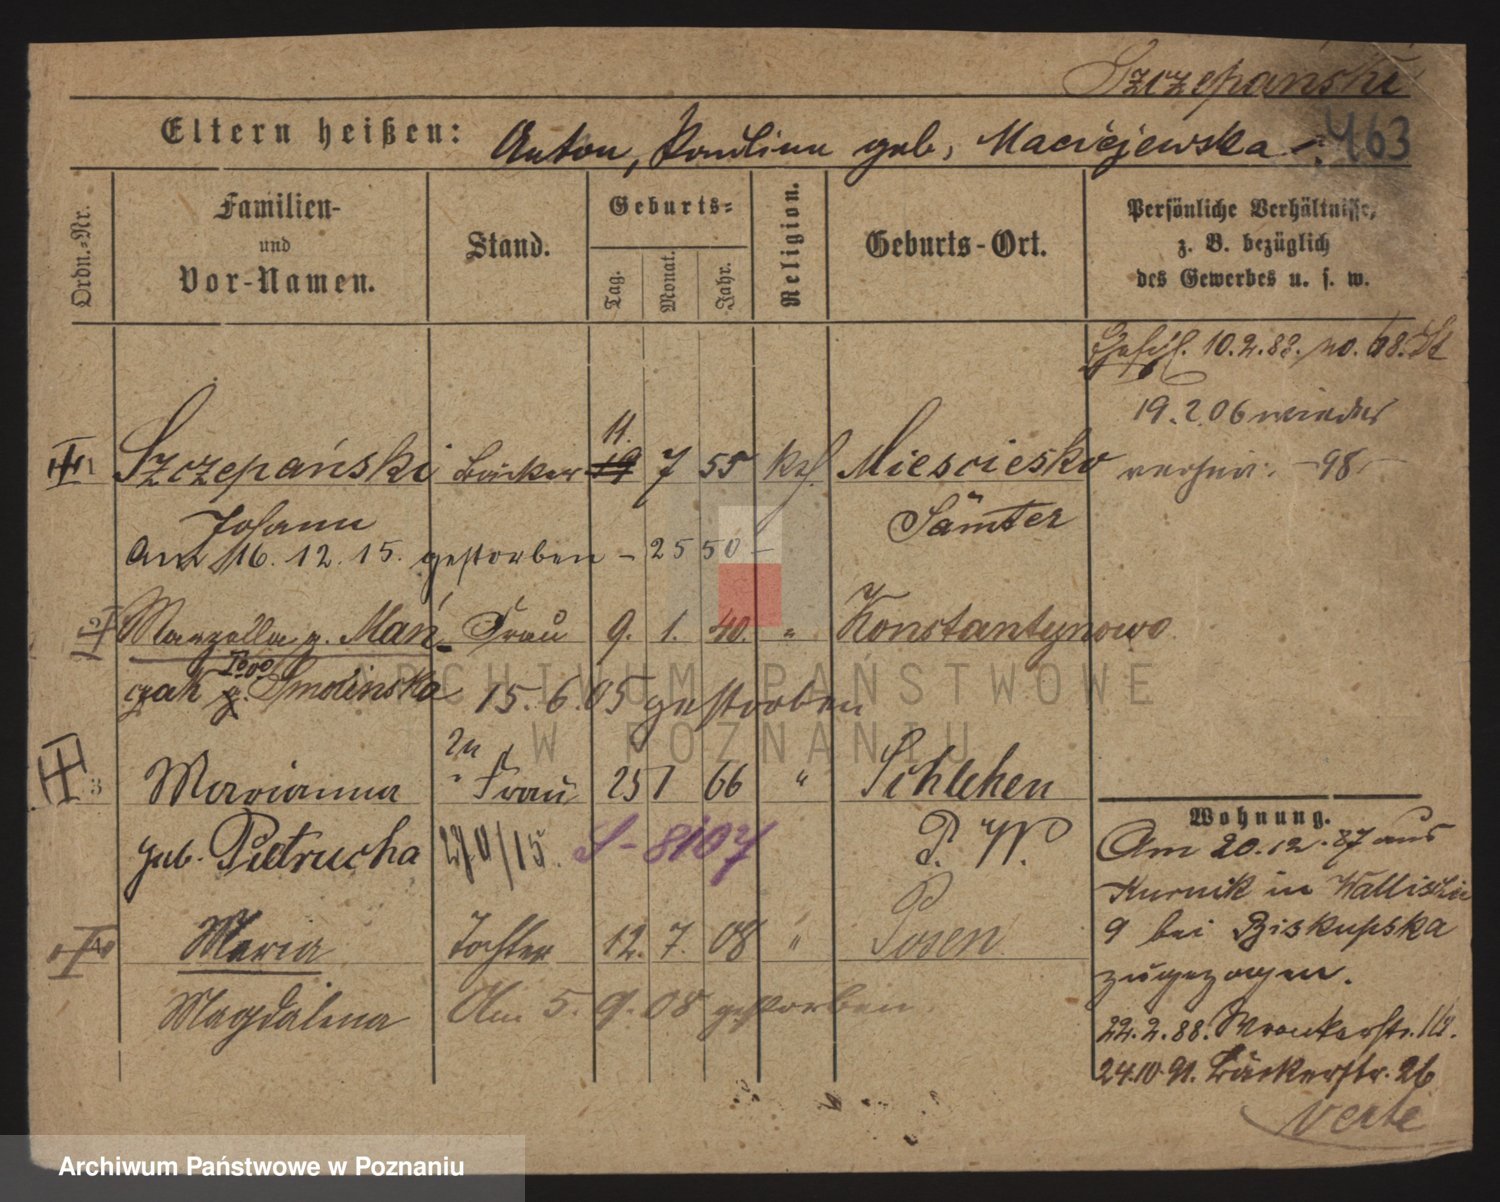 Szczepański
Eltern heißen: Anton, Paulina geb. Maciejewska
463
Ordn.=Nr.
Familien-
und
Vor-Namen.
Stand.
Geburts=
Tag.
Monat.
Jahr.
Religion.
Geburts-Ort.
Persönliche Verhältnisse,
z. B. bezüglich
des Gewerbes u. s. w.
10.2.83. No. 68. St
19.2.06 wieder
11.
1 Szczepański Bäcker 19 7 55 kth. Miescisko
98
Johann
Samter
Am 16.12.15. gestorben - 2550 -
2 Marzella g. Mań- Frau 9. 1. 40. " Konstantynowo
czak g. Smolinska
15.6.05 gestorben
2te
3 Marianna Frau 25 1 66 " Schlehen
Wohnung.
geb. Pietrucha S-8107 P. W.
Am 20.12.87 aus
Kurnik in Wallischei
9 bei Biskupska
zugezogen.
Maria Tochter 12. 7. 08 " Posen
Magdalena Am 5. 9. 08 gestorben
22.2.88. Wronkerstr.
24.10.91. Bäckerstr. 26
verte
ARCHIWUM PAŃSTWOWE
W POZNANIU
Archiwum Państwowe w Poznaniu